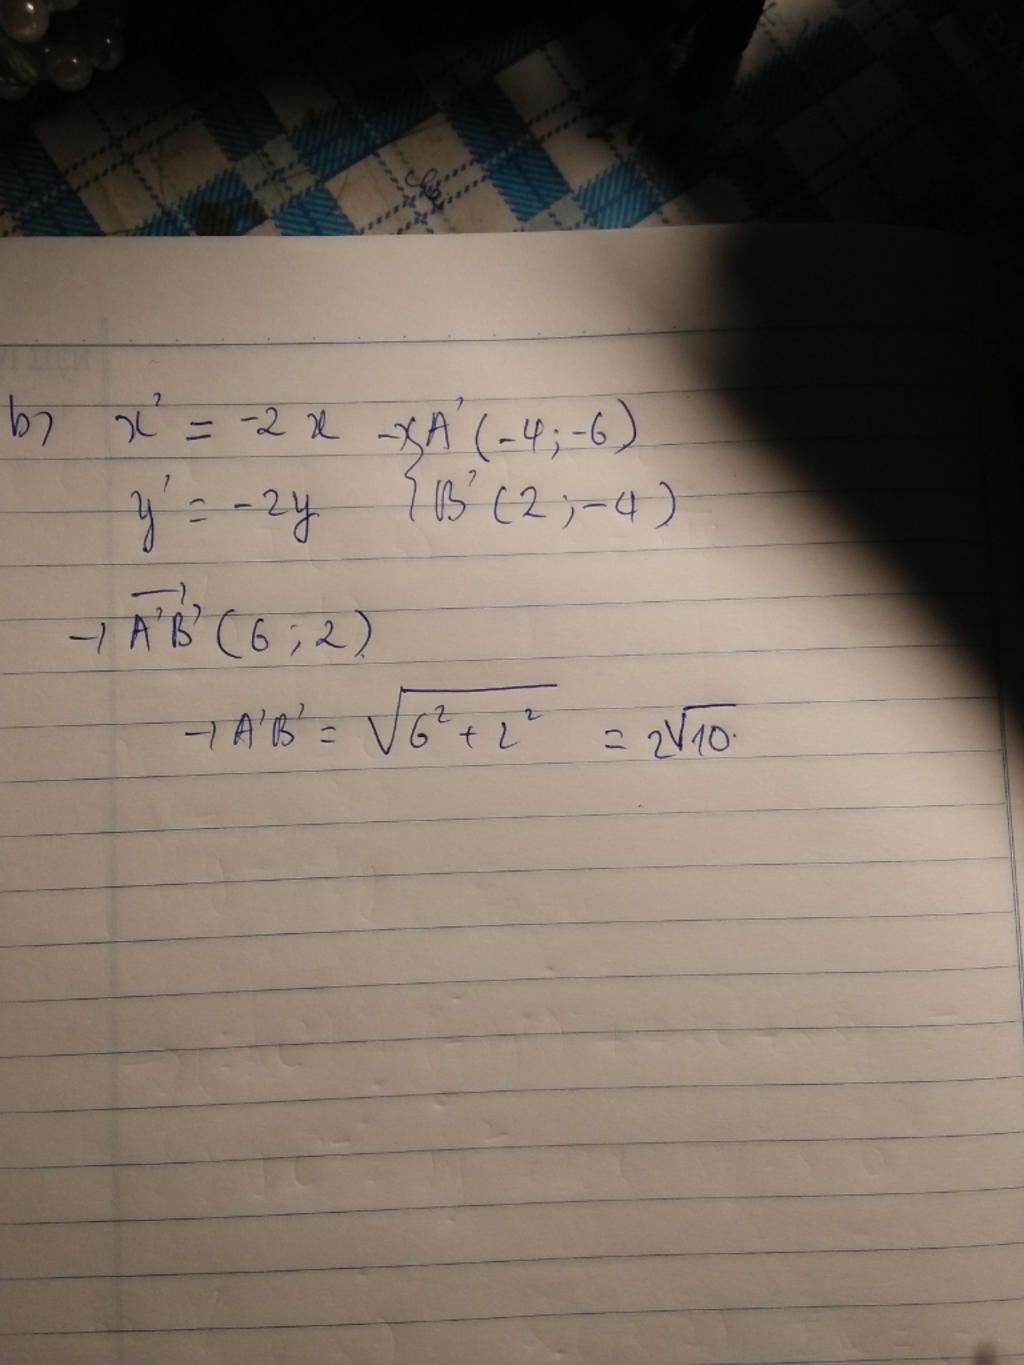 b) x' = -2x → { A'(-4;-6)
y' = -2y { B'(2;-4)
→ A'B'(6;2).
→ A'B' = √6² + 2² = 2√10.